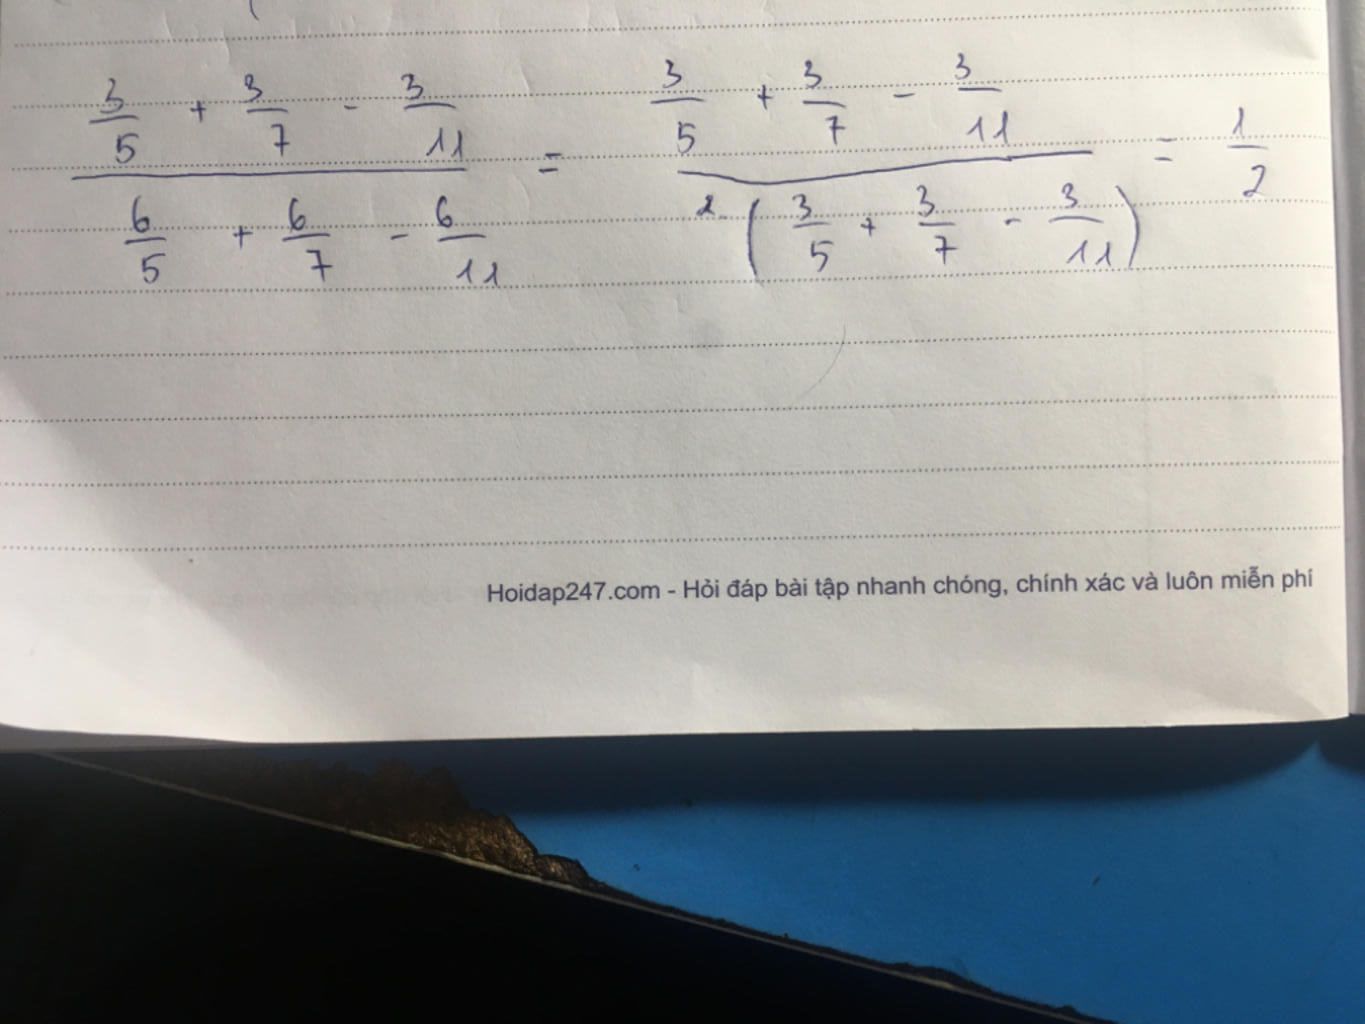 3/5 + 3/7 - 3/11 / 6/5 + 6/7 - 6/11 = 3/5 + 3/7 - 3/11 / 2 (3/5 + 3/7 - 3/11) = 1/2
Hoidap247.com - Hỏi đáp bài tập nhanh chóng, chính xác và luôn miễn phí